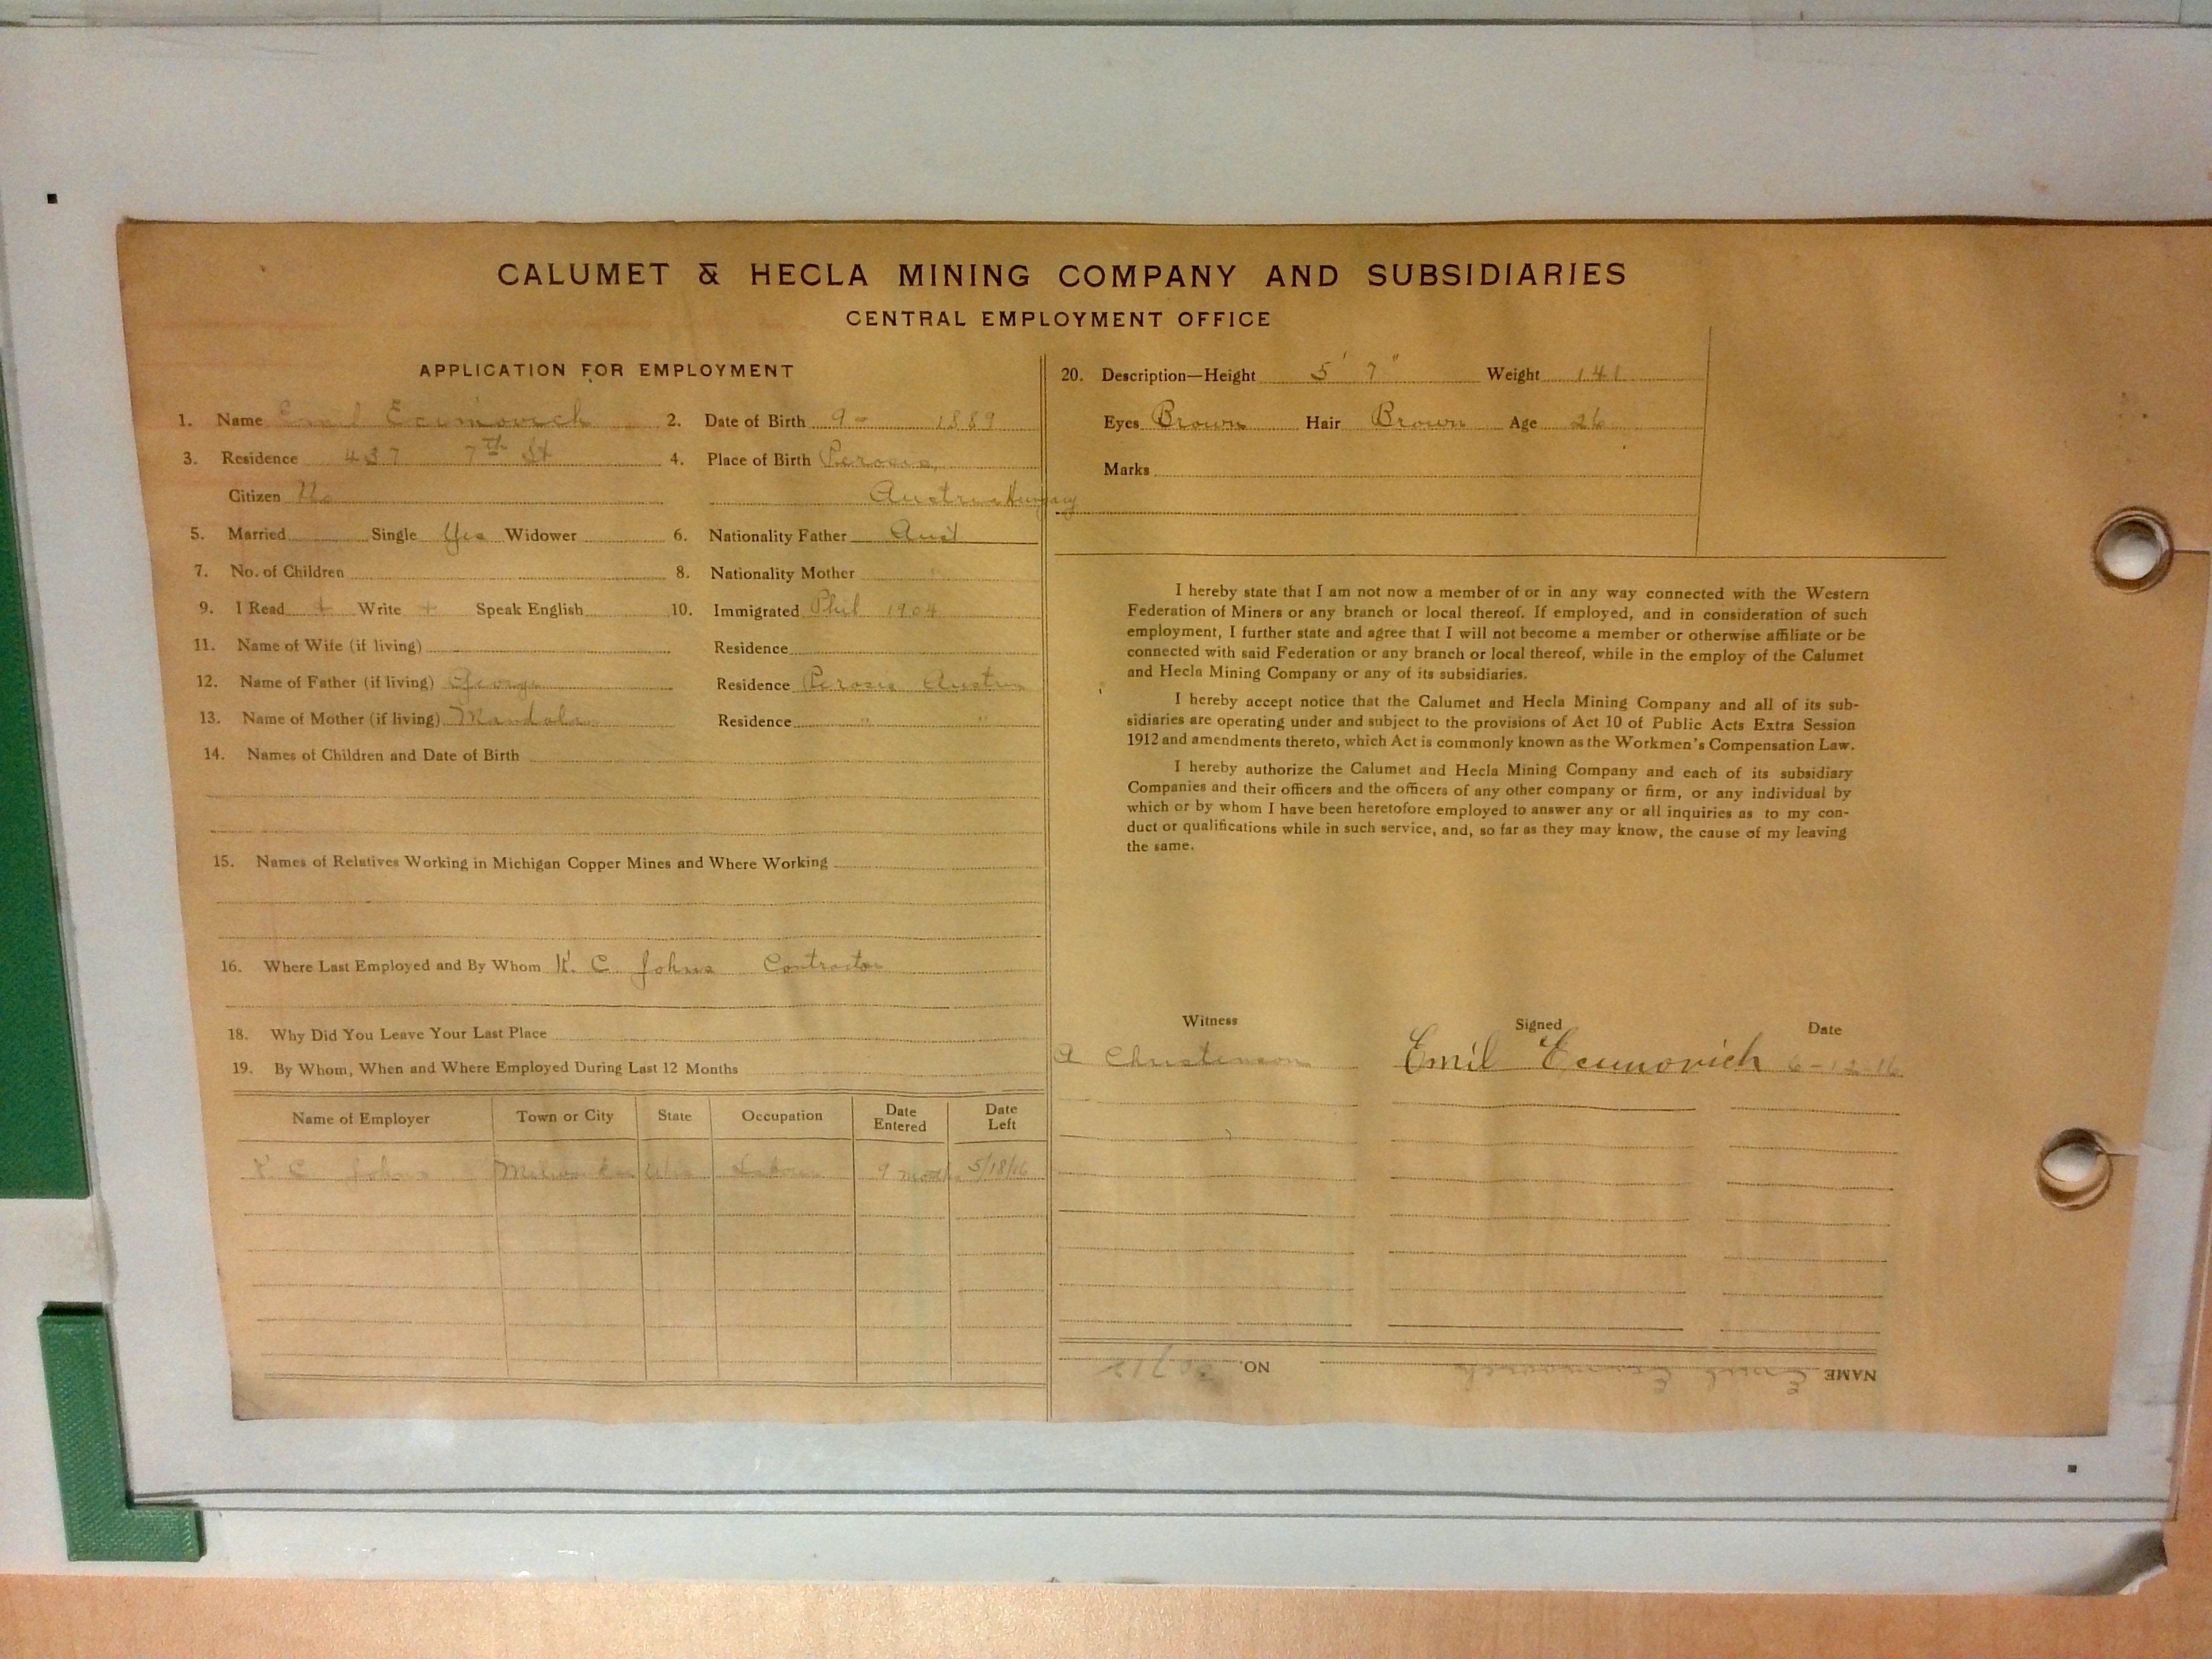 CALUMET & HECLA MINING COMPANY AND SUBSIDIARIES
CENTRAL EMPLOYMENT OFFICE
APPLICATION FOR EMPLOYMENT
1. Name Emil Ecimovich 2. Date of Birth 9- 1889
3. Residence 437 7th St 4. Place of Birth Perosis,
Citizen No Austria Hungary
5. Married Single Yes Widower 6. Nationality Father Aust
7. No. of Children 8. Nationality Mother "
9. I Read + Write + Speak English 10. Immigrated Phil 1904
11. Name of Wife (if living) Residence
12. Name of Father (if living) George Residence Perosis Austria
13. Name of Mother (if living) Mandola Residence " "
14. Names of Children and Date of Birth
15. Names of Relatives Working in Michigan Copper Mines and Where Working
16. Where Last Employed and By Whom K. C. Johns Contractor
18. Why Did You Leave Your Last Place
19. By Whom, When and Where Employed During Last 12 Months
Name of Employer Town or City State Occupation Date Entered Date Left
K. C. Johns Milwaukee Wis Labour 9 months 5/18/16
20. Description—Height 5' 7" Weight 141
Eyes Brown Hair Brown Age 26
Marks
I hereby state that I am not now a member of or in any way connected with the Western
Federation of Miners or any branch or local thereof. If employed, and in consideration of such
employment, I further state and agree that I will not become a member or otherwise affiliate or be
connected with said Federation or any branch or local thereof, while in the employ of the Calumet
and Hecla Mining Company or any of its subsidiaries.
I hereby accept notice that the Calumet and Hecla Mining Company and all of its sub-
sidiaries are operating under and subject to the provisions of Act 10 of Public Acts Extra Session
1912 and amendments thereto, which Act is commonly known as the Workmen's Compensation Law.
I hereby authorize the Calumet and Hecla Mining Company and each of its subsidiary
Companies and their officers and the officers of any other company or firm, or any individual by
which or by whom I have been heretofore employed to answer any or all inquiries as to my con-
duct or qualifications while in such service, and, so far as they may know, the cause of my leaving
the same.
Witness Signed Date
A Christenson Emil Ecimovich 6-12-16
NAME Emil Ecimovich NO.